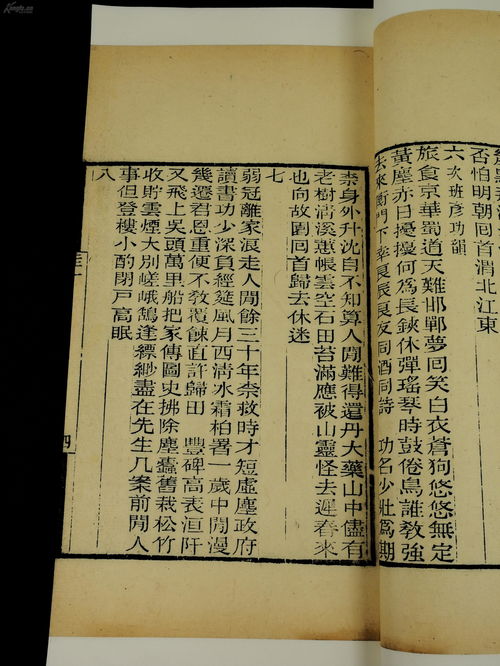 否怕明朝回首渭北江東
六 次班彦功韻
旅食京華蜀道天難邯鄲夢回笑白衣蒼狗悠悠無定
黃塵赤日擾擾何爲長鋏休彈瑤琴時鼓倦鳥誰教強
去來衡門下幸良辰良友同酒同詩 功名少壯爲期
柰身外升沈自不知算人閒難得還丹大藥山中儘有
老樹清溪蕙帳雲空石田苔滿應被山靈怪去遲春來
也向故園回首歸去休迷
七
弱冠離家浪走人閒餘三十年柰救時才短虛塵政府
讀書功少深負經筵風月西清冰霜柏署一歲中閒漫
幾遷君恩重便不敎覆餗直許歸田 豐碑高表洹阡
又飛上吳頭萬里船把家傳圖史拂除塵蠹舊栽松竹
收貯雲煙大別嵯峨鵠逢縹緲盡在先生几案前閒人
事但登樓小酌閉戸高眠
八
四